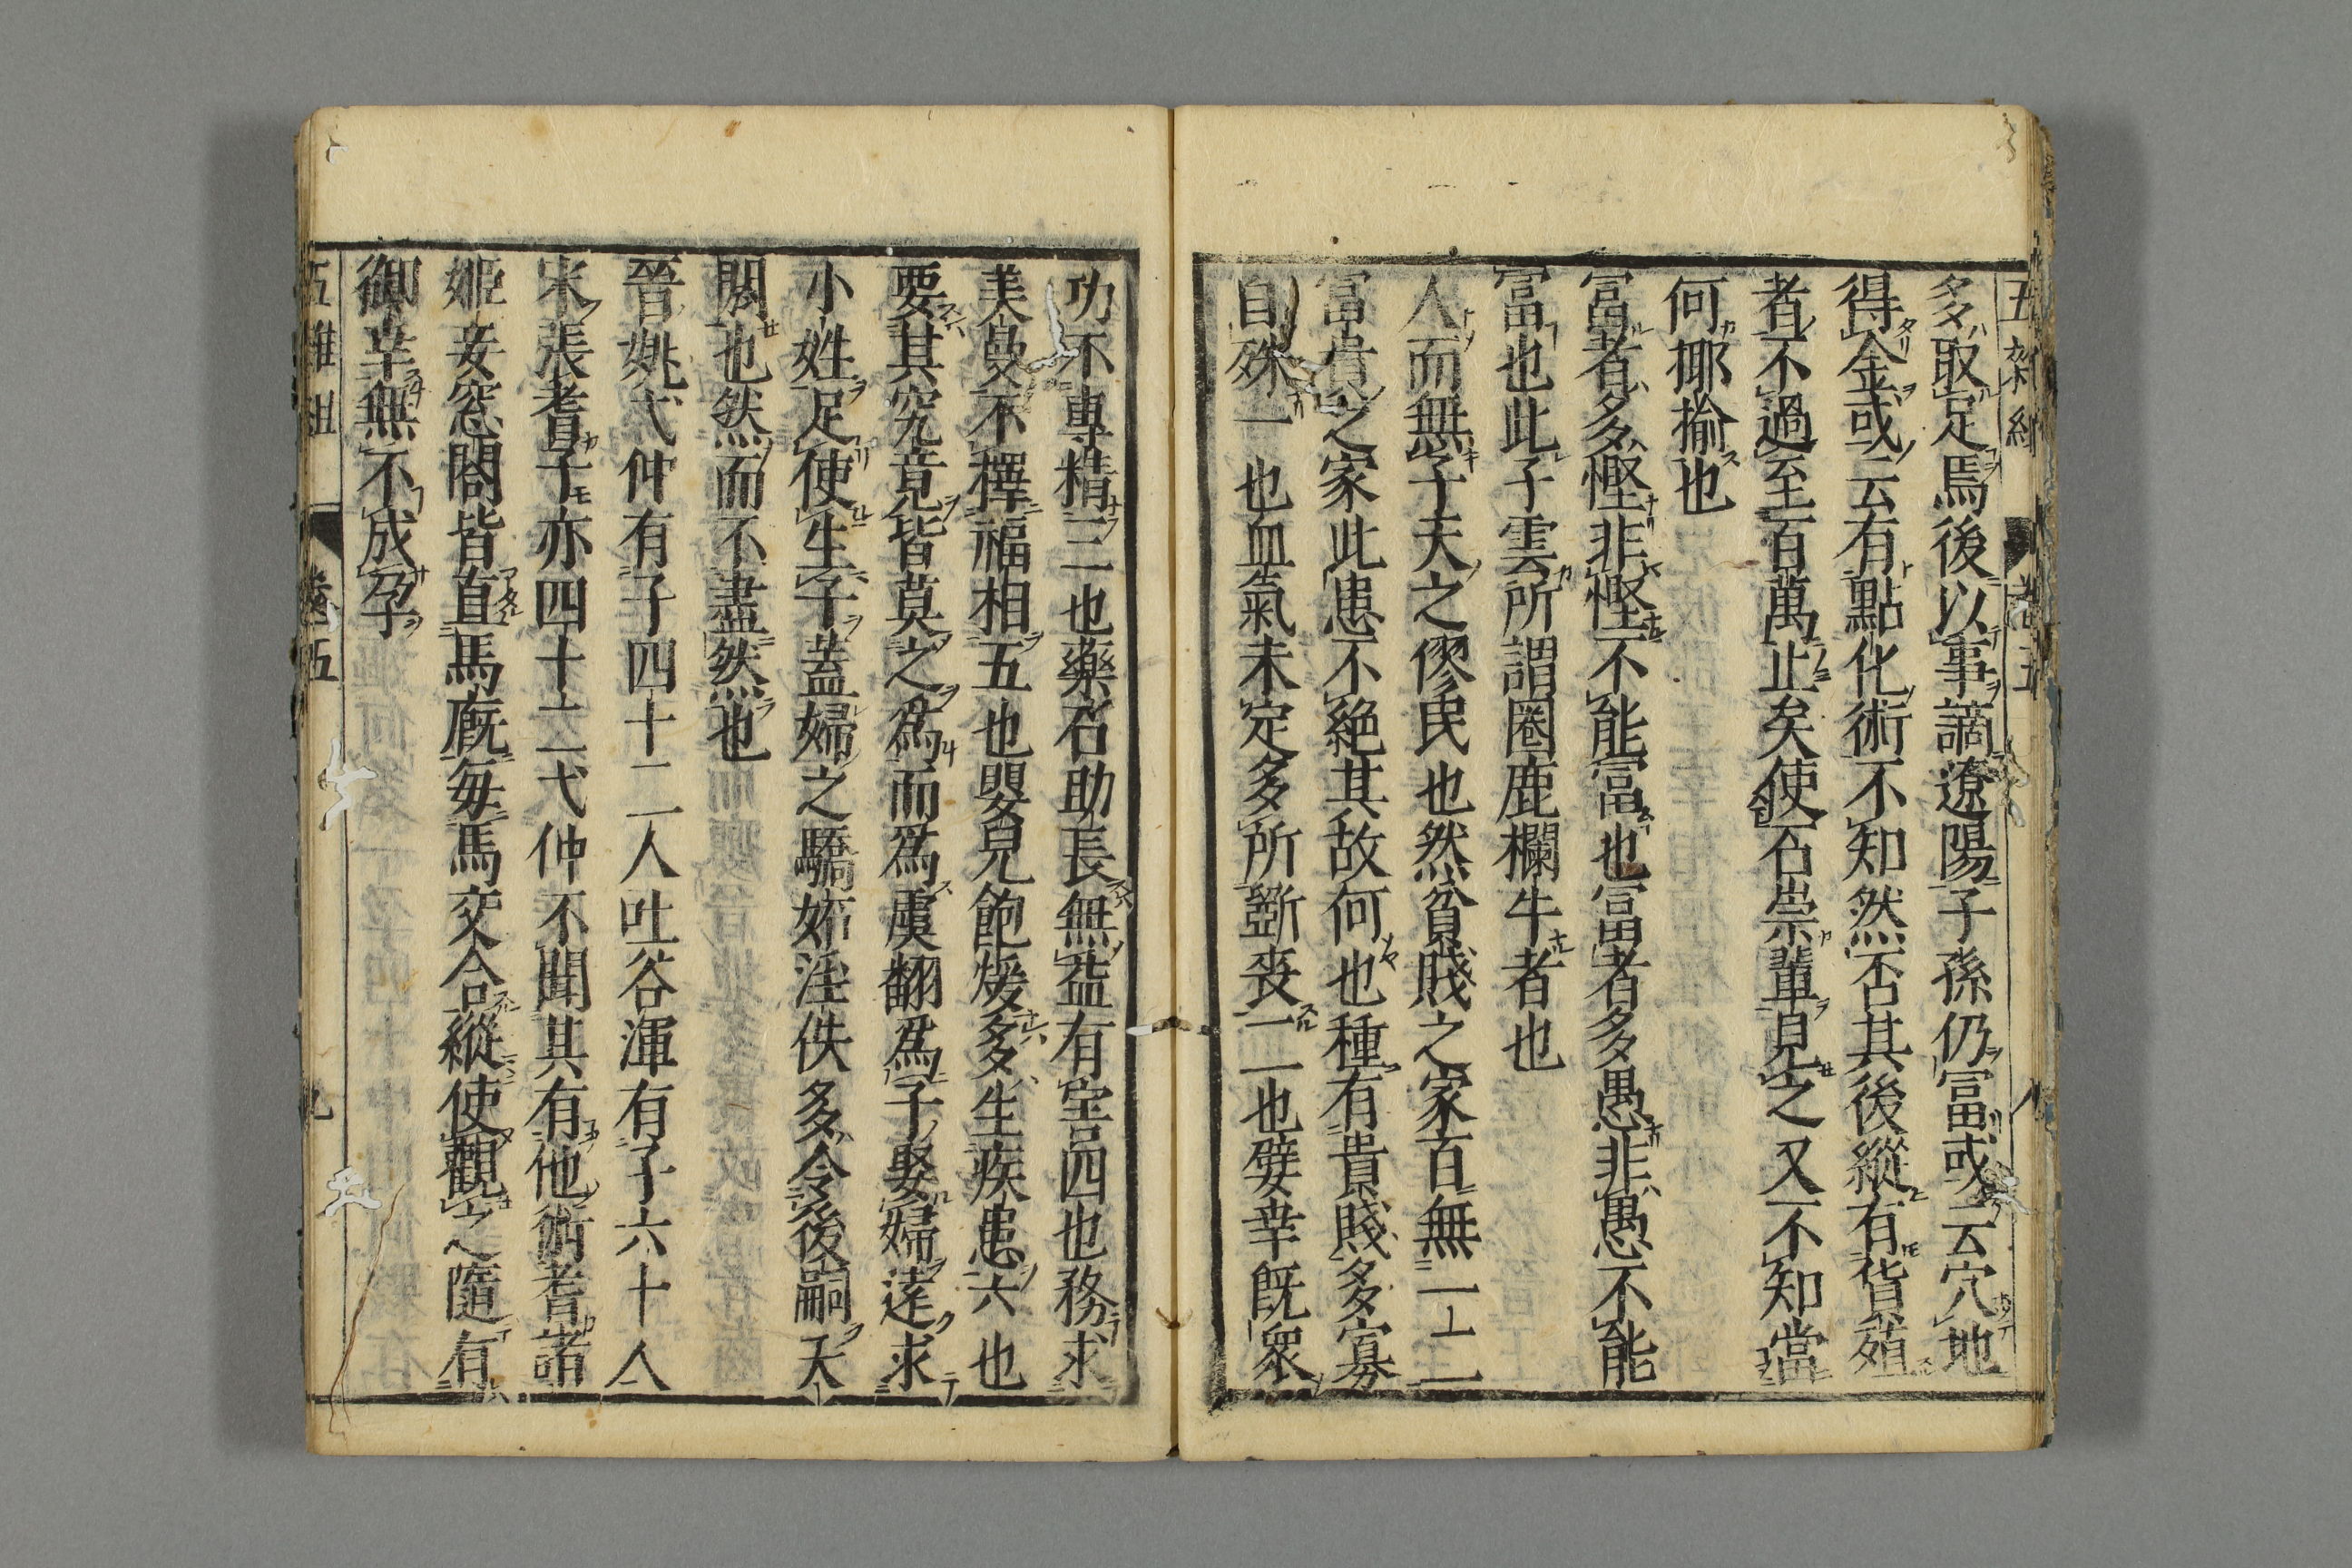 五雜組 卷五 八
多取足焉後以事謫遼陽子孫仍富或云穴地
得金或云有點化術不知然否其後縱有貨殖
者不過至百萬止矣使石崇輩見之又不知當
何揶揄也
富者多慳非慳不能富也富者多愚非愚不能
富也此子雲所謂圈鹿欄牛者也
人而無子天之僇民也然貧賤之家百無一二
富貴之家此患不絕其故何也種有貴賤多寡
自殊一也血氣未定多所斵喪二也嬖幸既衆
功不專精三也藥石助長無益有害四也務求
美曼不擇福相五也嬰兒飽煖多生疾患六也
要其究竟皆莫之爲而爲虞翻爲子娶婦遠求
小姓足使生子蓋婦之驕妬淫佚多令後嗣夭
閼也然而不盡然也
晉姚弋仲有子四十二人吐谷渾有子六十人
宋張耆子亦四十二弋仲不聞其有他術耆諸
姬妾窓閣皆直馬廐每馬交合縱使觀之隨有
御幸無不成孕
五雜組 卷五 九